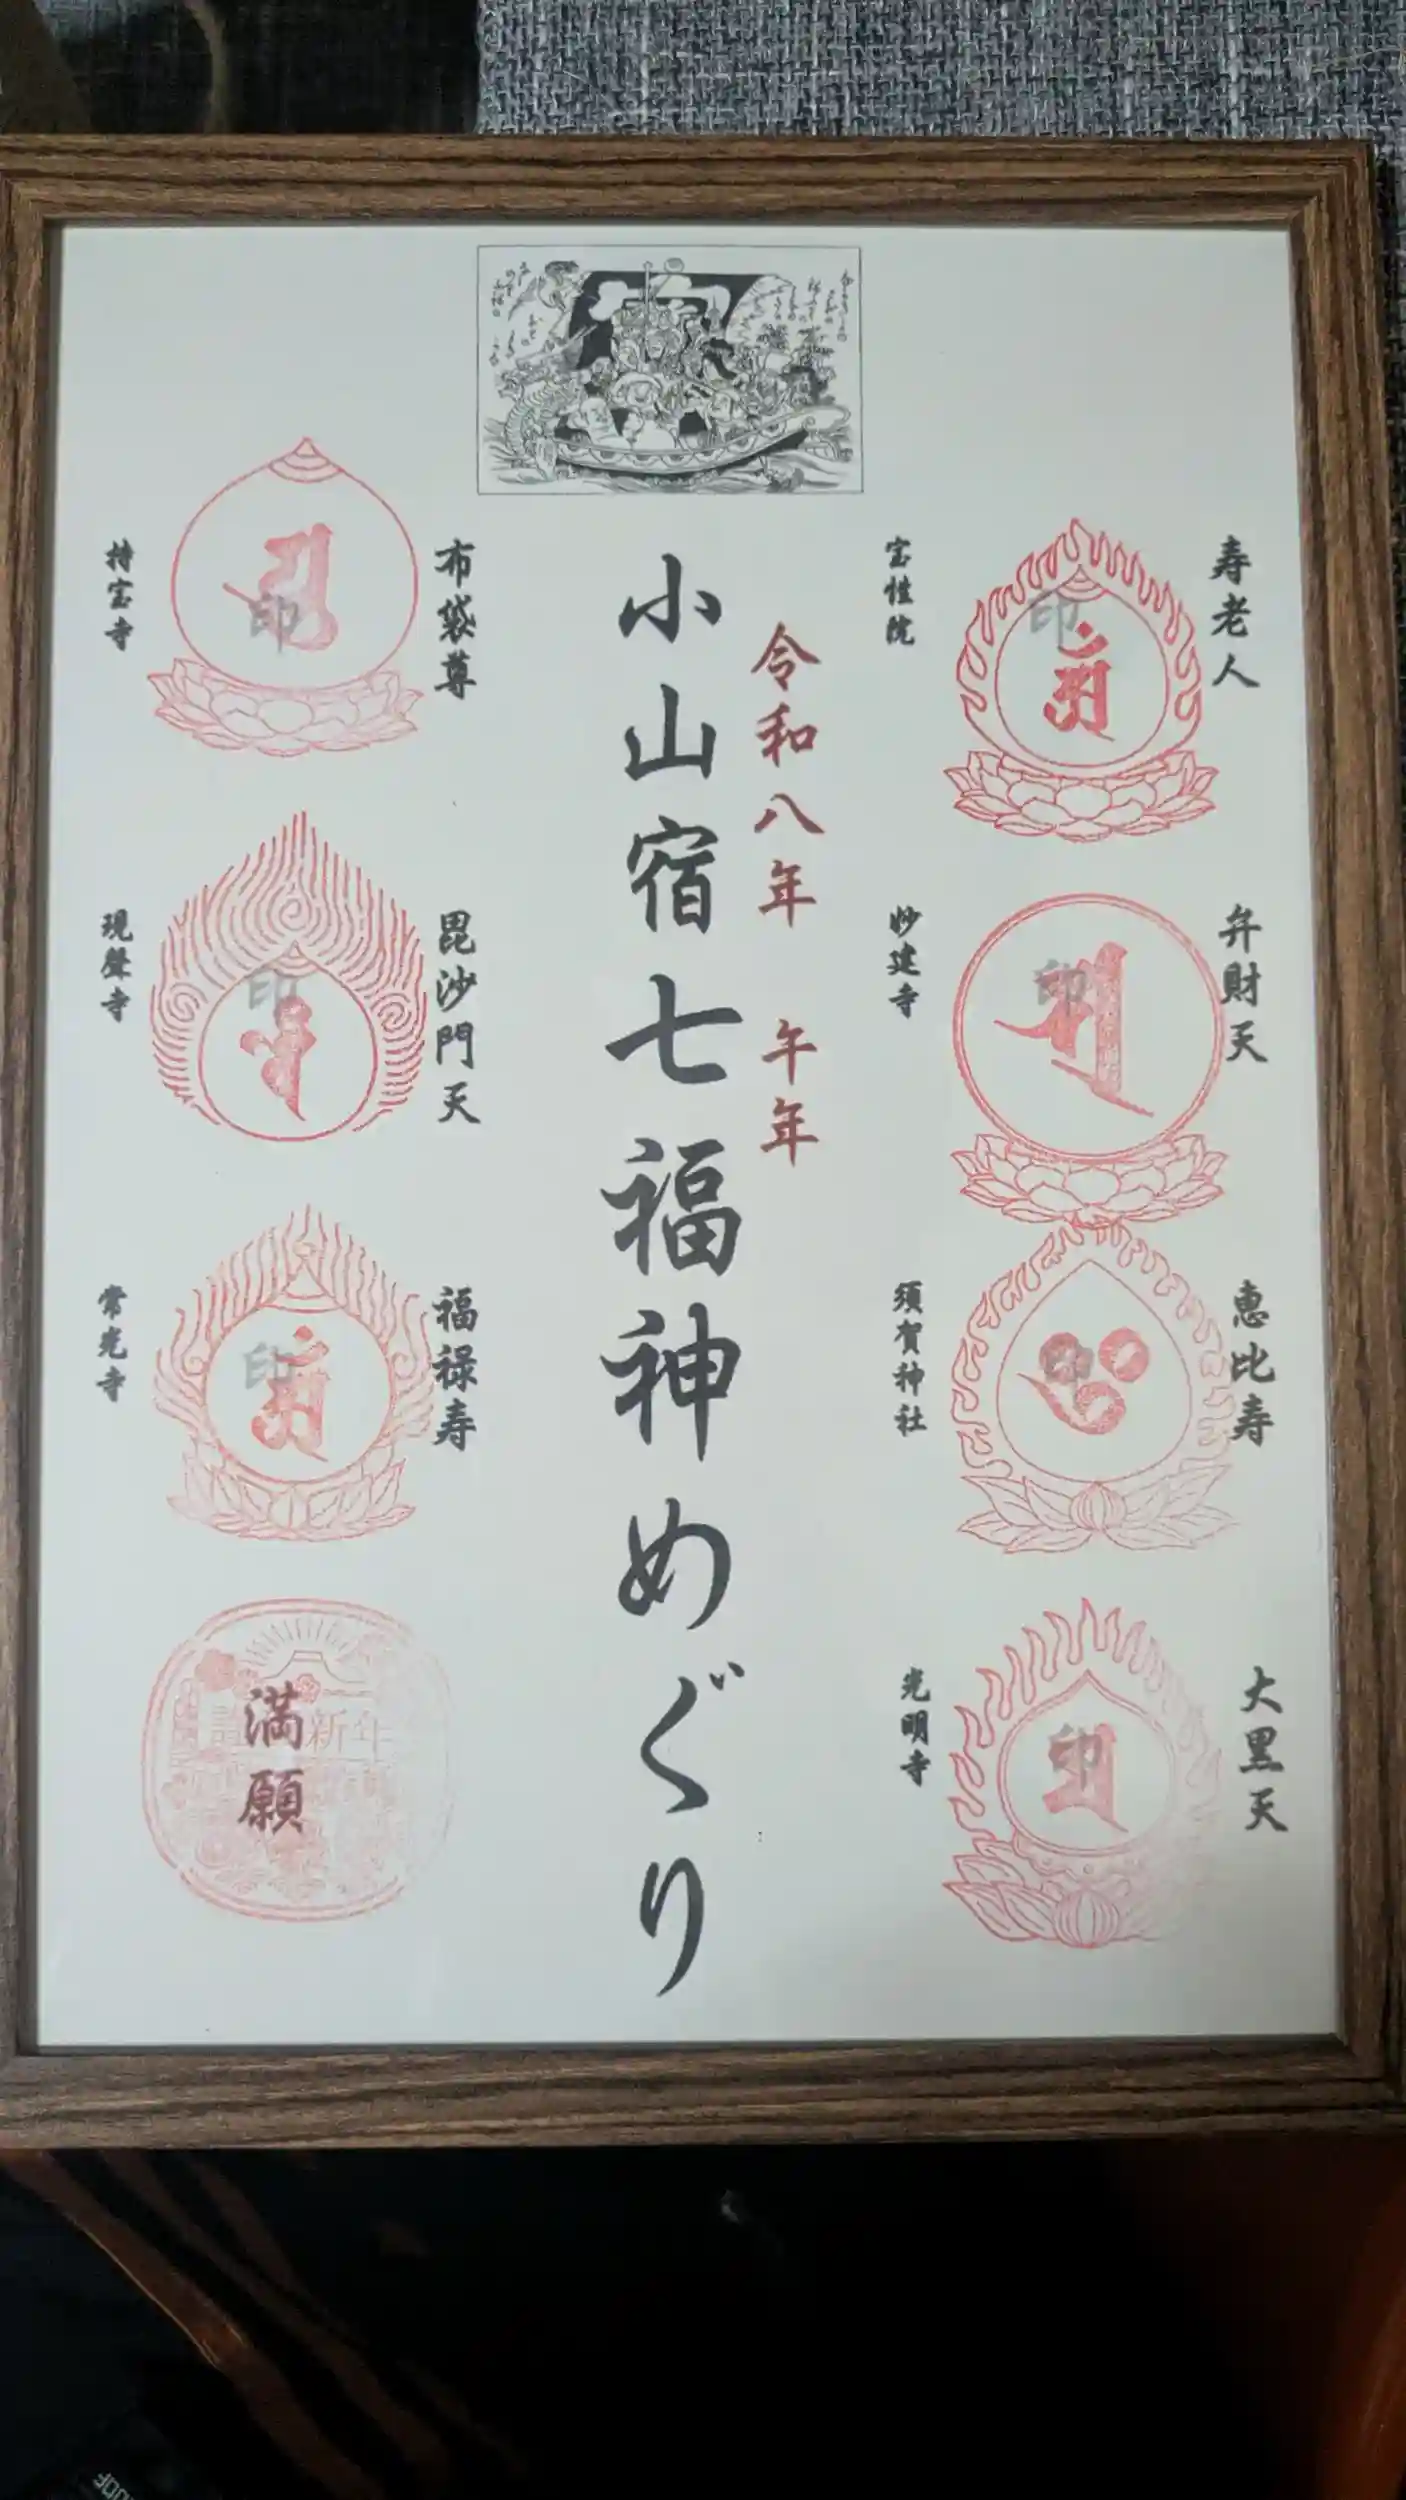 寿老人
宝性院
印
弁財天
妙建寺
印
恵比寿
須賀神社
印
大黒天
光明寺
印
令和八年 午年
小山宿七福神めぐり
布袋尊
持宝寺
印
毘沙門天
現聲寺
印
福禄寿
常光寺
印
満願
新年